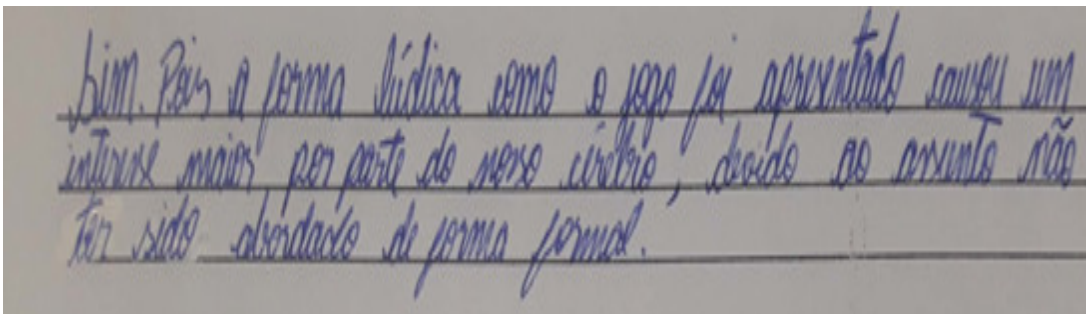 Sim. Pois a forma lúdica como o jogo foi apresentado causou um
interesse maior, por parte do nosso cérebro, devido ao assunto não
ter sido abordado de forma formal.